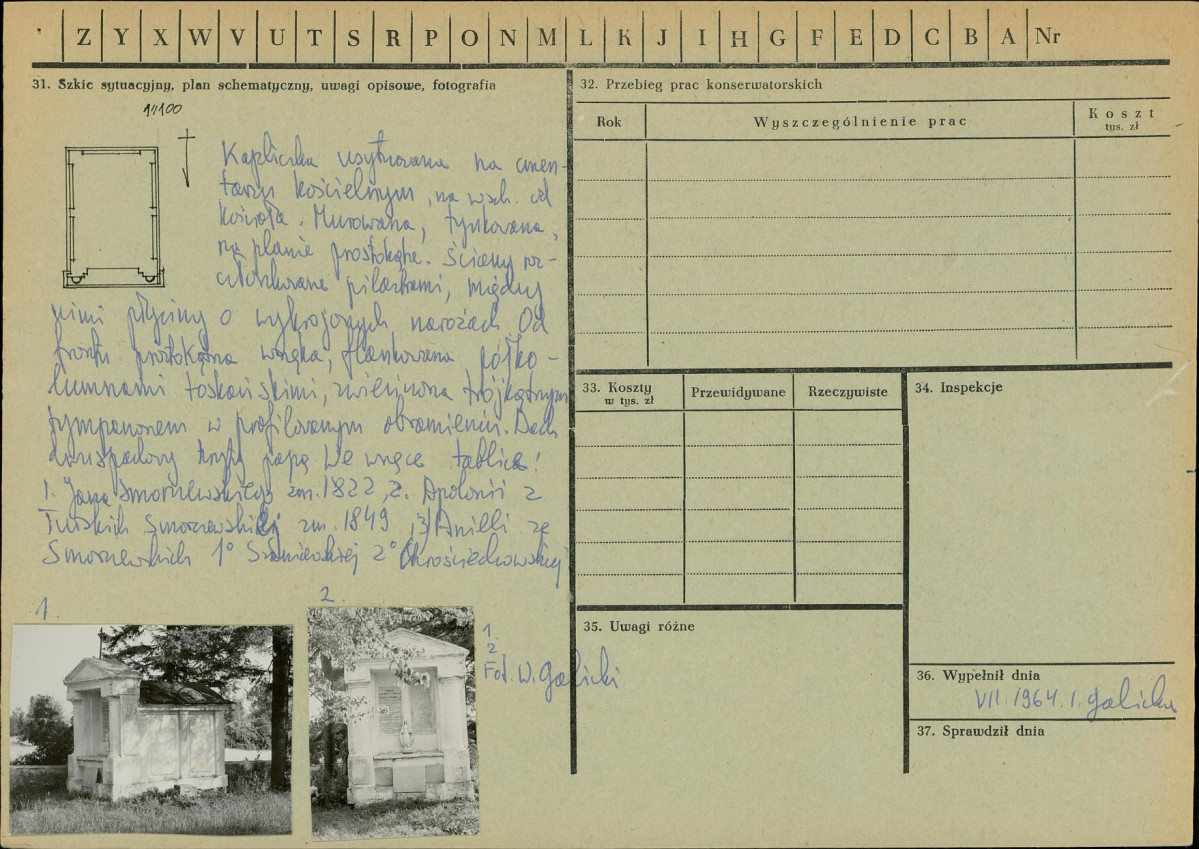 Z Y X W V U T S R P O N M L K J I H G F E D C B A Nr
31. Szkic sytuacyjny, plan schematyczny, uwagi opisowe, fotografia
1:100
Kapliczka usytuowana na cmen-
tarzu kościelnym, na wsch. od
kościoła. Murowana, tynkowana,
na planie prostokąta. Ściany roz-
członkowane pilastrami, między
nimi płyciny o wykrojonych narożach. Od
frontu prostokątna wnęka, flankowana półko-
lumnami toskańskimi, zwieńczona trójkątnym
tympanonem w profilowanym obramieniu. Dach
dwuspadowy kryty papą. We wnęce tablice:
1. Jana Smorzewskiego zm. 1822, 2. Apolonii z
Turskich Smorzewskiej zm. 1849, 3) Anieli ze
Smorzewskich 1° 2° Chrościechowskiej
1.
2.
1.
2.
Fot. W. Galicki
32. Przebieg prac konserwatorskich
Rok
Wyszczególnienie prac
Koszt
tys. zł
33. Koszty
w tys. zł
Przewidywane
Rzeczywiste
34. Inspekcje
35. Uwagi różne
36. Wypełnił dnia
VII. 1964. I. Galicka
37. Sprawdził dnia